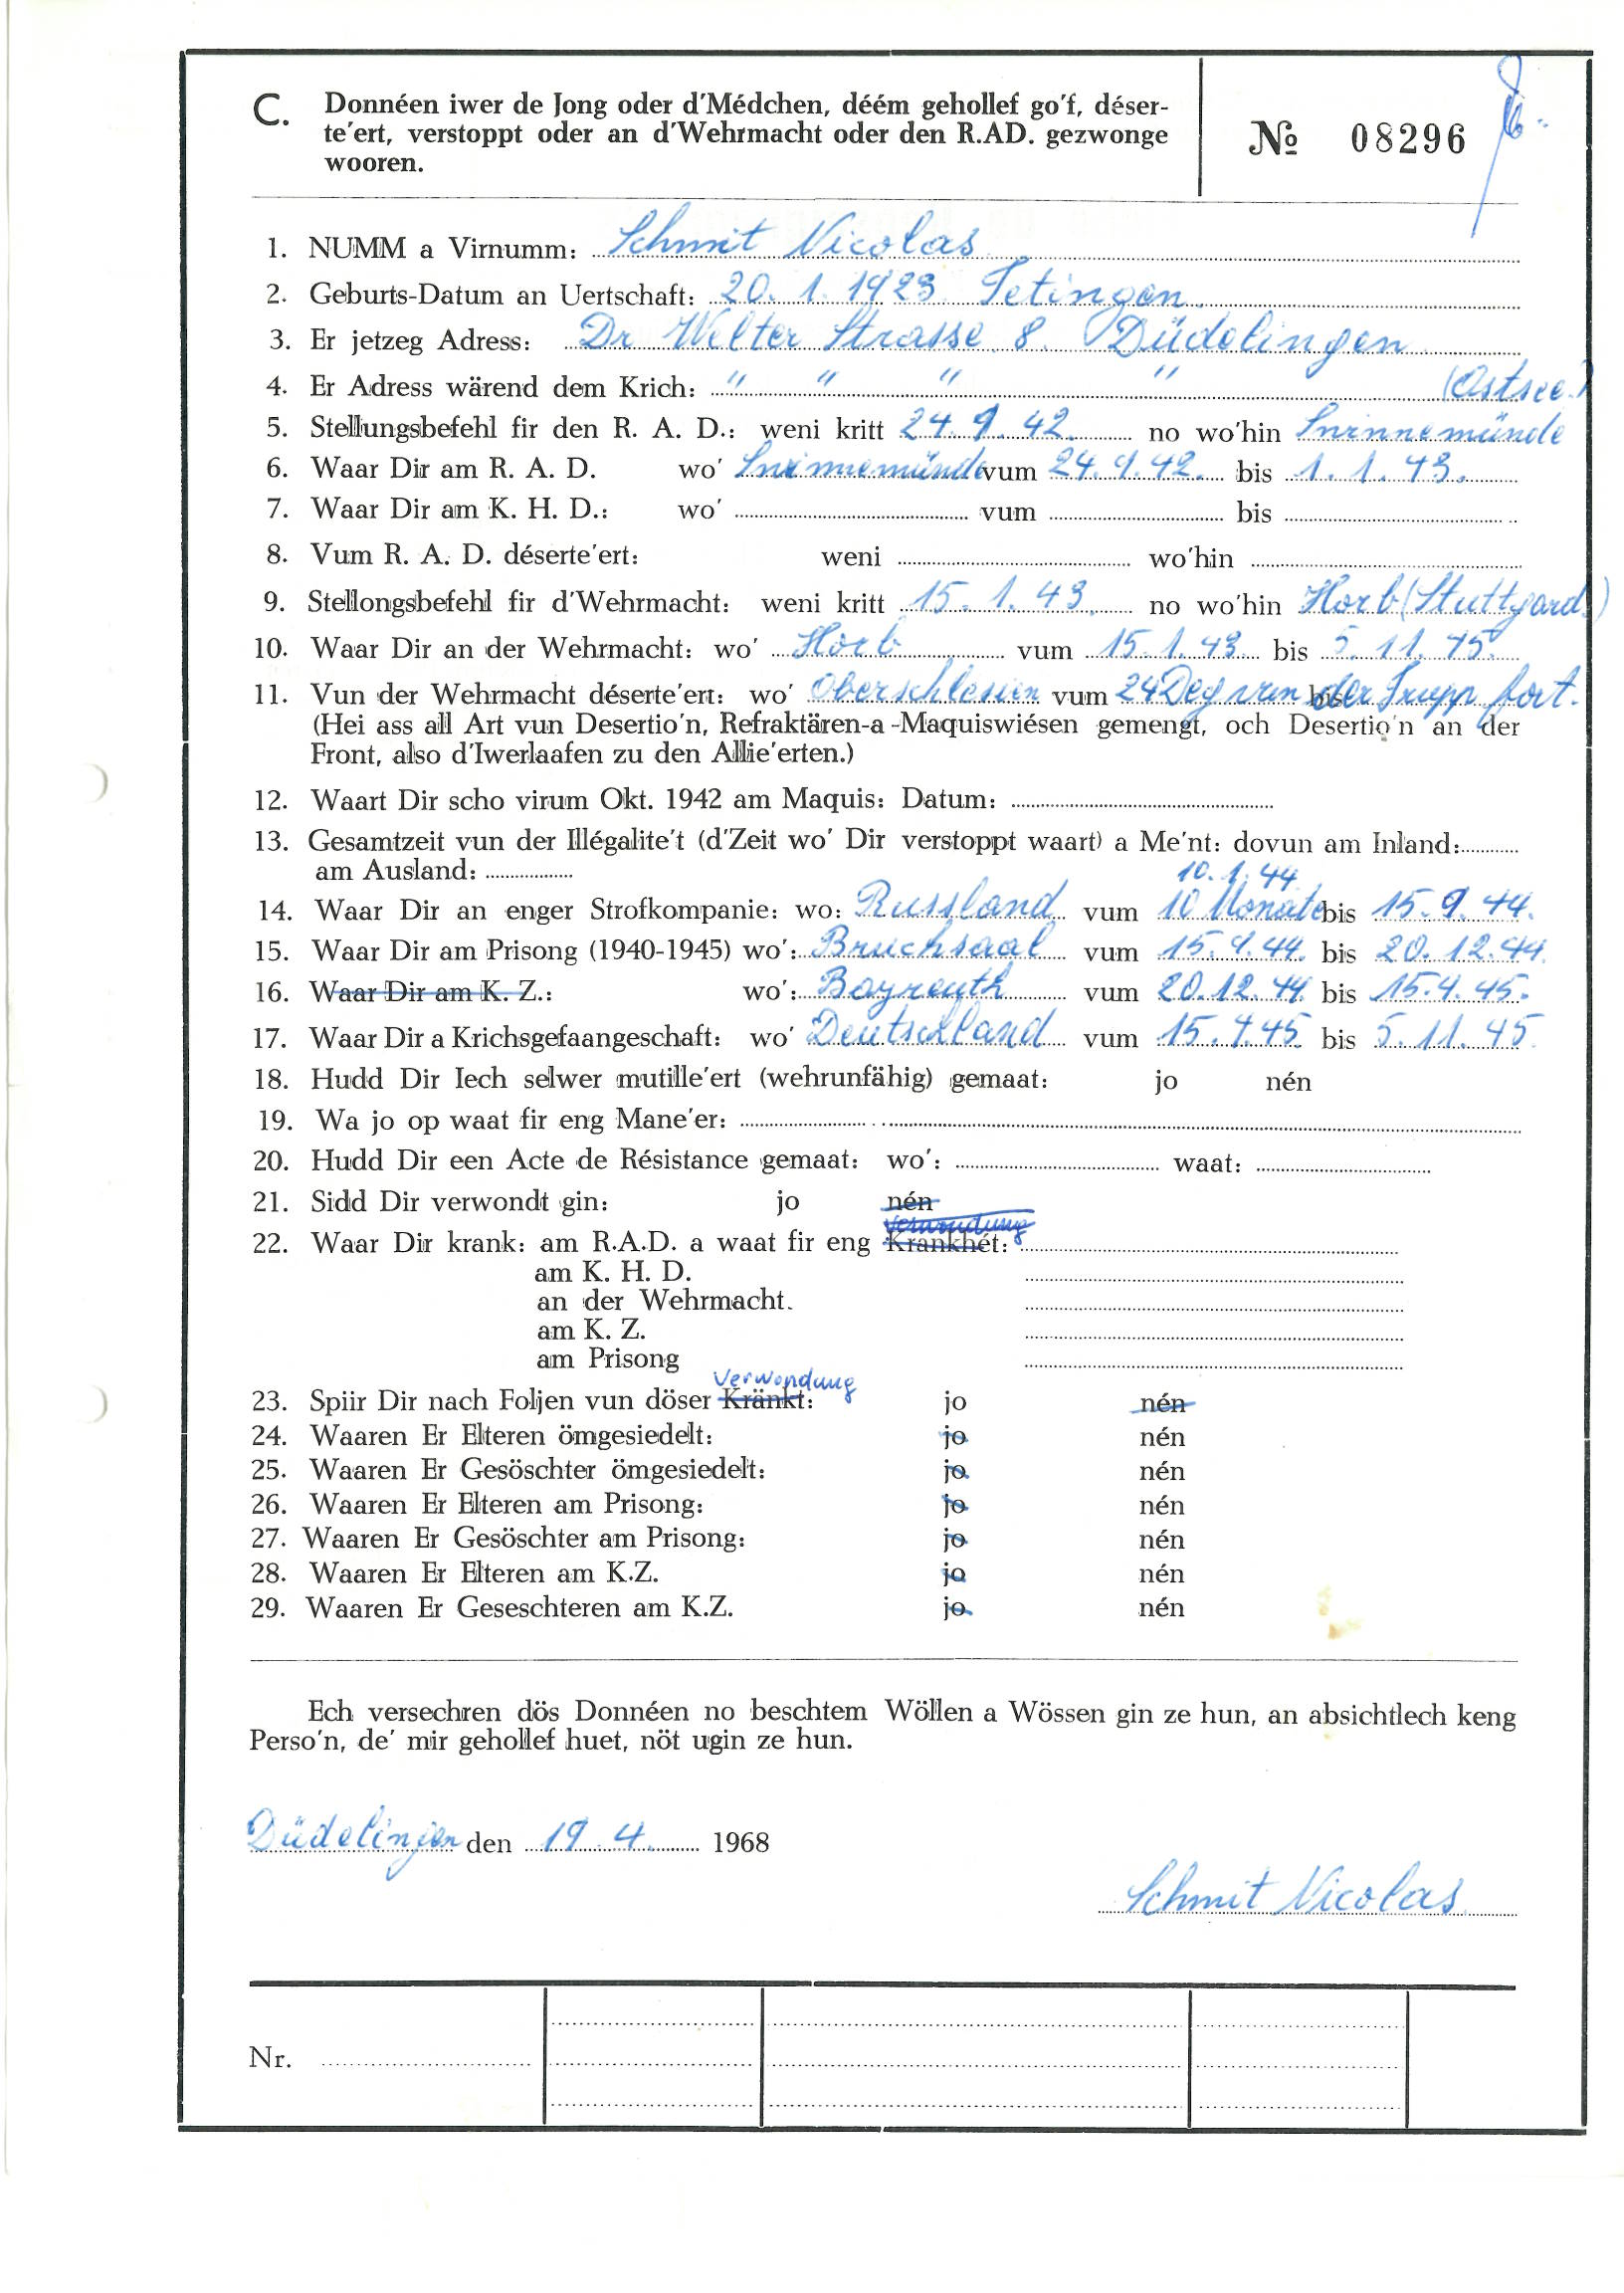 C. Donnéen iwer de Jong oder d'Médchen, déém gehollef go'f, déser-
te'ert, verstoppt oder an d'Wehrmacht oder den R.AD. gezwonge
wooren.
№ 08296
1. NUMM a Virnumm: Schmit Nicolas
2. Geburts-Datum an Uertschaft: 20. 1. 1923 Tetingen
3. Er jetzeg Adress: Dr Welter Strasse 8. Düdelingen
4. Er Adress wärend dem Krich: " " " " (Ostsee.)
5. Stellungsbefehl fir den R. A. D.: weni kritt 24. 9. 42. no wo'hin Swinnemünde
6. Waar Dir am R. A. D. wo' Swinnemünde vum 24. 9. 42. bis 1. 1. 43.
7. Waar Dir am K. H. D.: wo' vum bis
8. Vum R. A. D. déserte'ert: weni wo'hin
9. Stellongsbefehl fir d'Wehrmacht: weni kritt 15. 1. 43. no wo'hin Horb (Stuttgard.)
10. Waar Dir an der Wehrmacht: wo' Horb vum 15. 1. 43. bis 5. 11. 45.
11. Vun der Wehrmacht déserte'ert: wo' Oberschlesien vum 24 Deg vun bis der Trupp fort.
(Hei ass all Art vun Desertio'n, Refraktären-a -Maquiswiésen gemengt, och Desertio'n an der
Front, also d'Iwerlaafen zu den Allie'erten.)
12. Waart Dir scho virum Okt. 1942 am Maquis: Datum:
13. Gesamtzeit vun der Illégalite't (d'Zeit wo' Dir verstoppt waart) a Me'nt: dovun am Inland:
am Ausland:
10. 1. 44.
14. Waar Dir an enger Strofkompanie: wo: Russland vum 10 Monate bis 15. 9. 44.
15. Waar Dir am Prisong (1940-1945) wo': Bruchsaal vum 15. 9. 44. bis 20. 12. 44.
16. Waar Dir am K. Z.: wo': Bayreuth vum 20. 12. 44. bis 15. 4. 45.
17. Waar Dir a Krichsgefaangeschaft: wo' Deutschland vum 15. 4. 45. bis 5. 11. 45.
18. Hudd Dir Iech selwer mutille'ert (wehrunfähig) gemaat: jo nén
19. Wa jo op waat fir eng Mane'er:
20. Hudd Dir een Acte de Résistance gemaat: wo': waat:
21. Sidd Dir verwondt gin: jo nén
Verwondung
22. Waar Dir krank: am R.A.D. a waat fir eng Krankhét:
am K. H. D.
an der Wehrmacht.
am K. Z.
am Prisong
Verwondung
23. Spiir Dir nach Foljen vun döser Kränkt: jo nén
24. Waaren Er Elteren ömgesiedelt: jo nén
25. Waaren Er Gesöschter ömgesiedelt: jo nén
26. Waaren Er Elteren am Prisong: jo nén
27. Waaren Er Gesöschter am Prisong: jo nén
28. Waaren Er Elteren am K.Z. jo nén
29. Waaren Er Geseschteren am K.Z. jo nén
Ech versechren dös Donnéen no beschtem Wöllen a Wössen gin ze hun, an absichtlech keng
Perso'n, de' mir gehollef huet, nöt ugin ze hun.
Düdelingen den 19. 4. 1968
Schmit Nicolas
Nr.